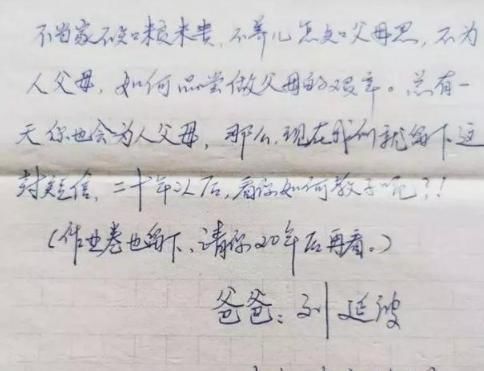 不当家不知粮米贵，不养儿怎知父母恩，不为
人父母，如何品尝做父母的艰辛。总有一
天你也会为人父母，那么，现在我们就留下这
封短信，二十年以后，看你如何教子呢？！
（作业卷也留下、请你20年后再看。）
爸爸：刘延波